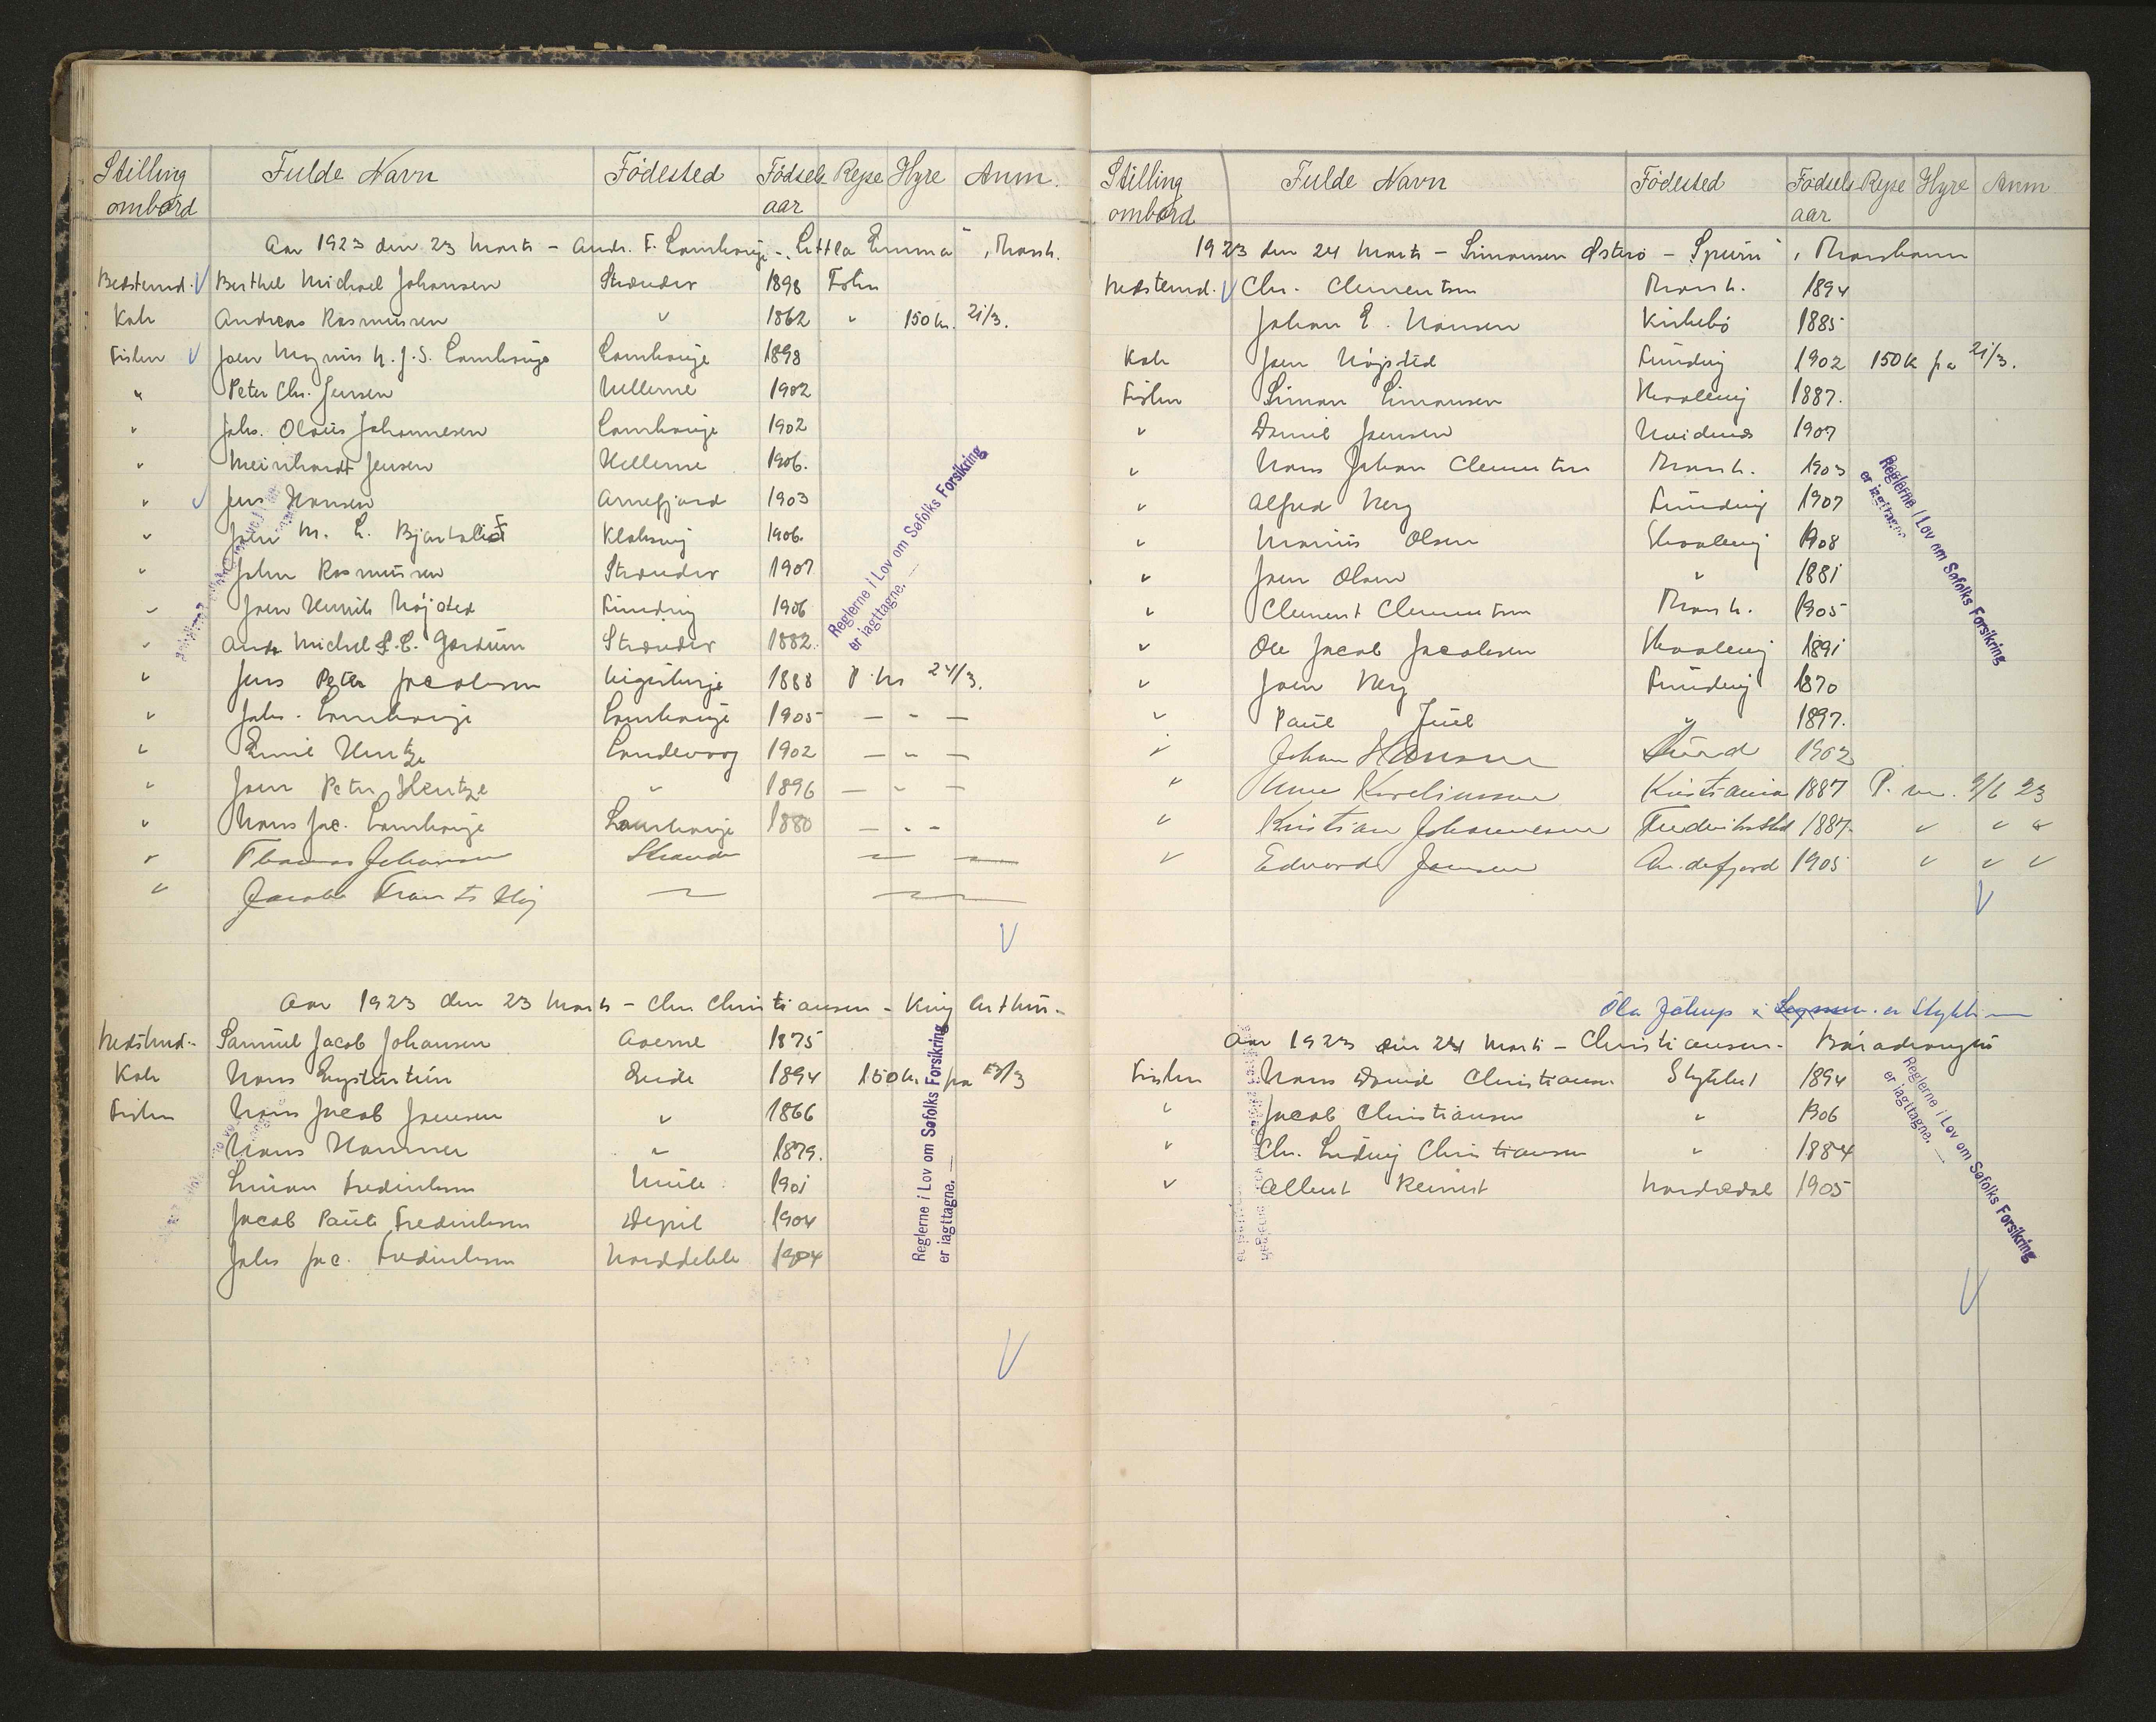 Stilling ombord Fulde Navn Födested Födsels aar Rejse Hyre Anm.
Aar 1923 den 23 Marts - Andr. F. Lamhauge - "Littla Emma", Thorsh.
Bedstemd. V Berthel Michael Johansen Strænder 1898 Fisken
Kok Andreas Rasmussen " 1862 " 150 kr. 21/3.
Fisker V Joen Magnus h. J. S. Lamhauge Lamhauge 1898
" Peter Chr. Jensen Hellerne 1902
" Johs. Olaus Johannesen Lamhauge 1902
" Meinhardt Jensen Hellerne 1906.
" V Jens Hansen Arnefjord 1903
" Joen M. E. Bjartalid Klaksvig 1906.
" John Rasmussen Strænder 1907
" Joen Henrik Højsted Funding 1906
" Andr Michael S. C. Gærdum Strænder 1882.
" Jens Peter Jacobsen 1888 P. hr 24/3.
" Johs. Lamhauge Lamhauge 1905 — " —
" Emil Hentze Sandevaag 1902 — " —
" Joen Peter Hentze " 1896 — " —
" Hans Jac. Lamhauge Lamhauge 1880 — " —
" Thomas Johansen Strænder — —
" Jacob Frants Høj — —
V
Reglerne i Lov om Søfolks Forsikring
er iagttagne. —
Aar 1923 den 23 Marts - Chr Christiansen - King Arthur -
Bedstmd. - Samuel Jacob Johansen Averne 1875
Kok Hans Eysturtún Eide 1894 150 kr. fra 23/3
Fisker Hans Jacob Joensen " 1866
Hans Hammer " 1879.
Simon Fredriksen Mule 1901
Jacob Pauli Fredriksen Depil 1904
Johs Jac. Fredriksen Norddeble 1904
V
Reglerne i Lov om Søfolks Forsikring
er iagttagne. —
Stilling ombord Fulde Navn Födested Födsels aar Rejse Hyre Anm
1923 den 24 Marts - Simonsen Østerø - "Spurn", Thorshavn
Bedstemd. V Chr. Clementsen Thorsh. 1894
Johan E. Hansen Kirkebö 1885
Kok Joen Højsted Funding 1902 150 Kr fra 21/3.
Fisker Simon Simonsen Skaalevig 1887.
" Daniel Joensen Hvidenæs 1907
" Hans Johan Clementsen Thorsh. 1903
" Alfred Berg Funding 1907
" Marius Olsen Skaalevig 1908
" Joen Olsen " 1881
" Clement Clementsen Thorsh. 1905
" Ole Jacob Jacobsen Skaalevig 1891
" Joen Berg Funding 1870
" Paul Juul " 1897.
" Johan Hansen Sund 1902
" Kareliussen Kristiania 1887 P. m. 5/6 23
" Kristian Johannesen Fredrikstad 1887 " " "
" Edvard Jansen 1905 " " "
V
Reglerne i Lov om Søfolks Forsikring
er iagttagne.
Ola Jätrup i er Stykk
Aar 1923 den 24 Marts - Christiansen -
Fisker Hans David Christiansen 1894
" Jacob Christiansen " 1906
" Chr. Ludvig Christiansen " 1884
" Albert Reinert Nordredal 1905
Reglerne i Lov om Søfolks Forsikring
er iagttagne. —
V